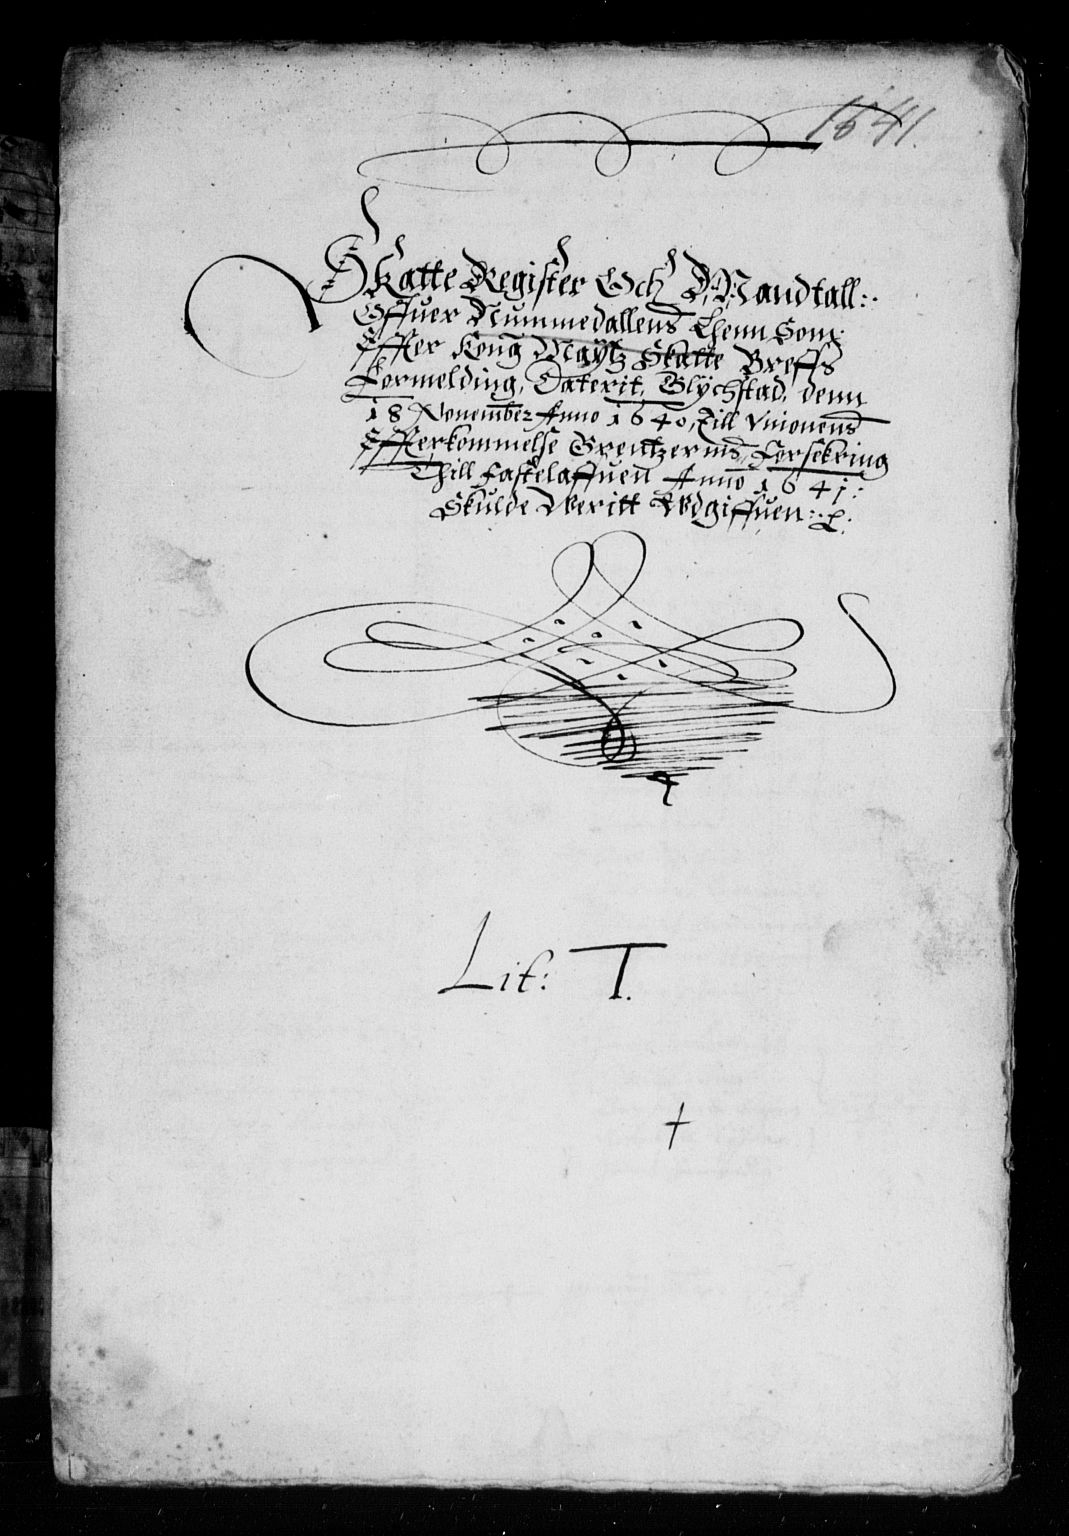 1641.
Skatte Register Och Mandtall:
Offuer Nummedallens Lhenn Som
Effter Kong Maytz Skatte Breffs
Formelding, Daterit, Glychstad, denn
18 Nouember Anno 1640, Till Vnionens
Effterkommelse Grentzernis, Forsekring
Thill Fastelaffuen Anno 1641:
Skulde Weritt Wdgiffuen:
Lit: T.